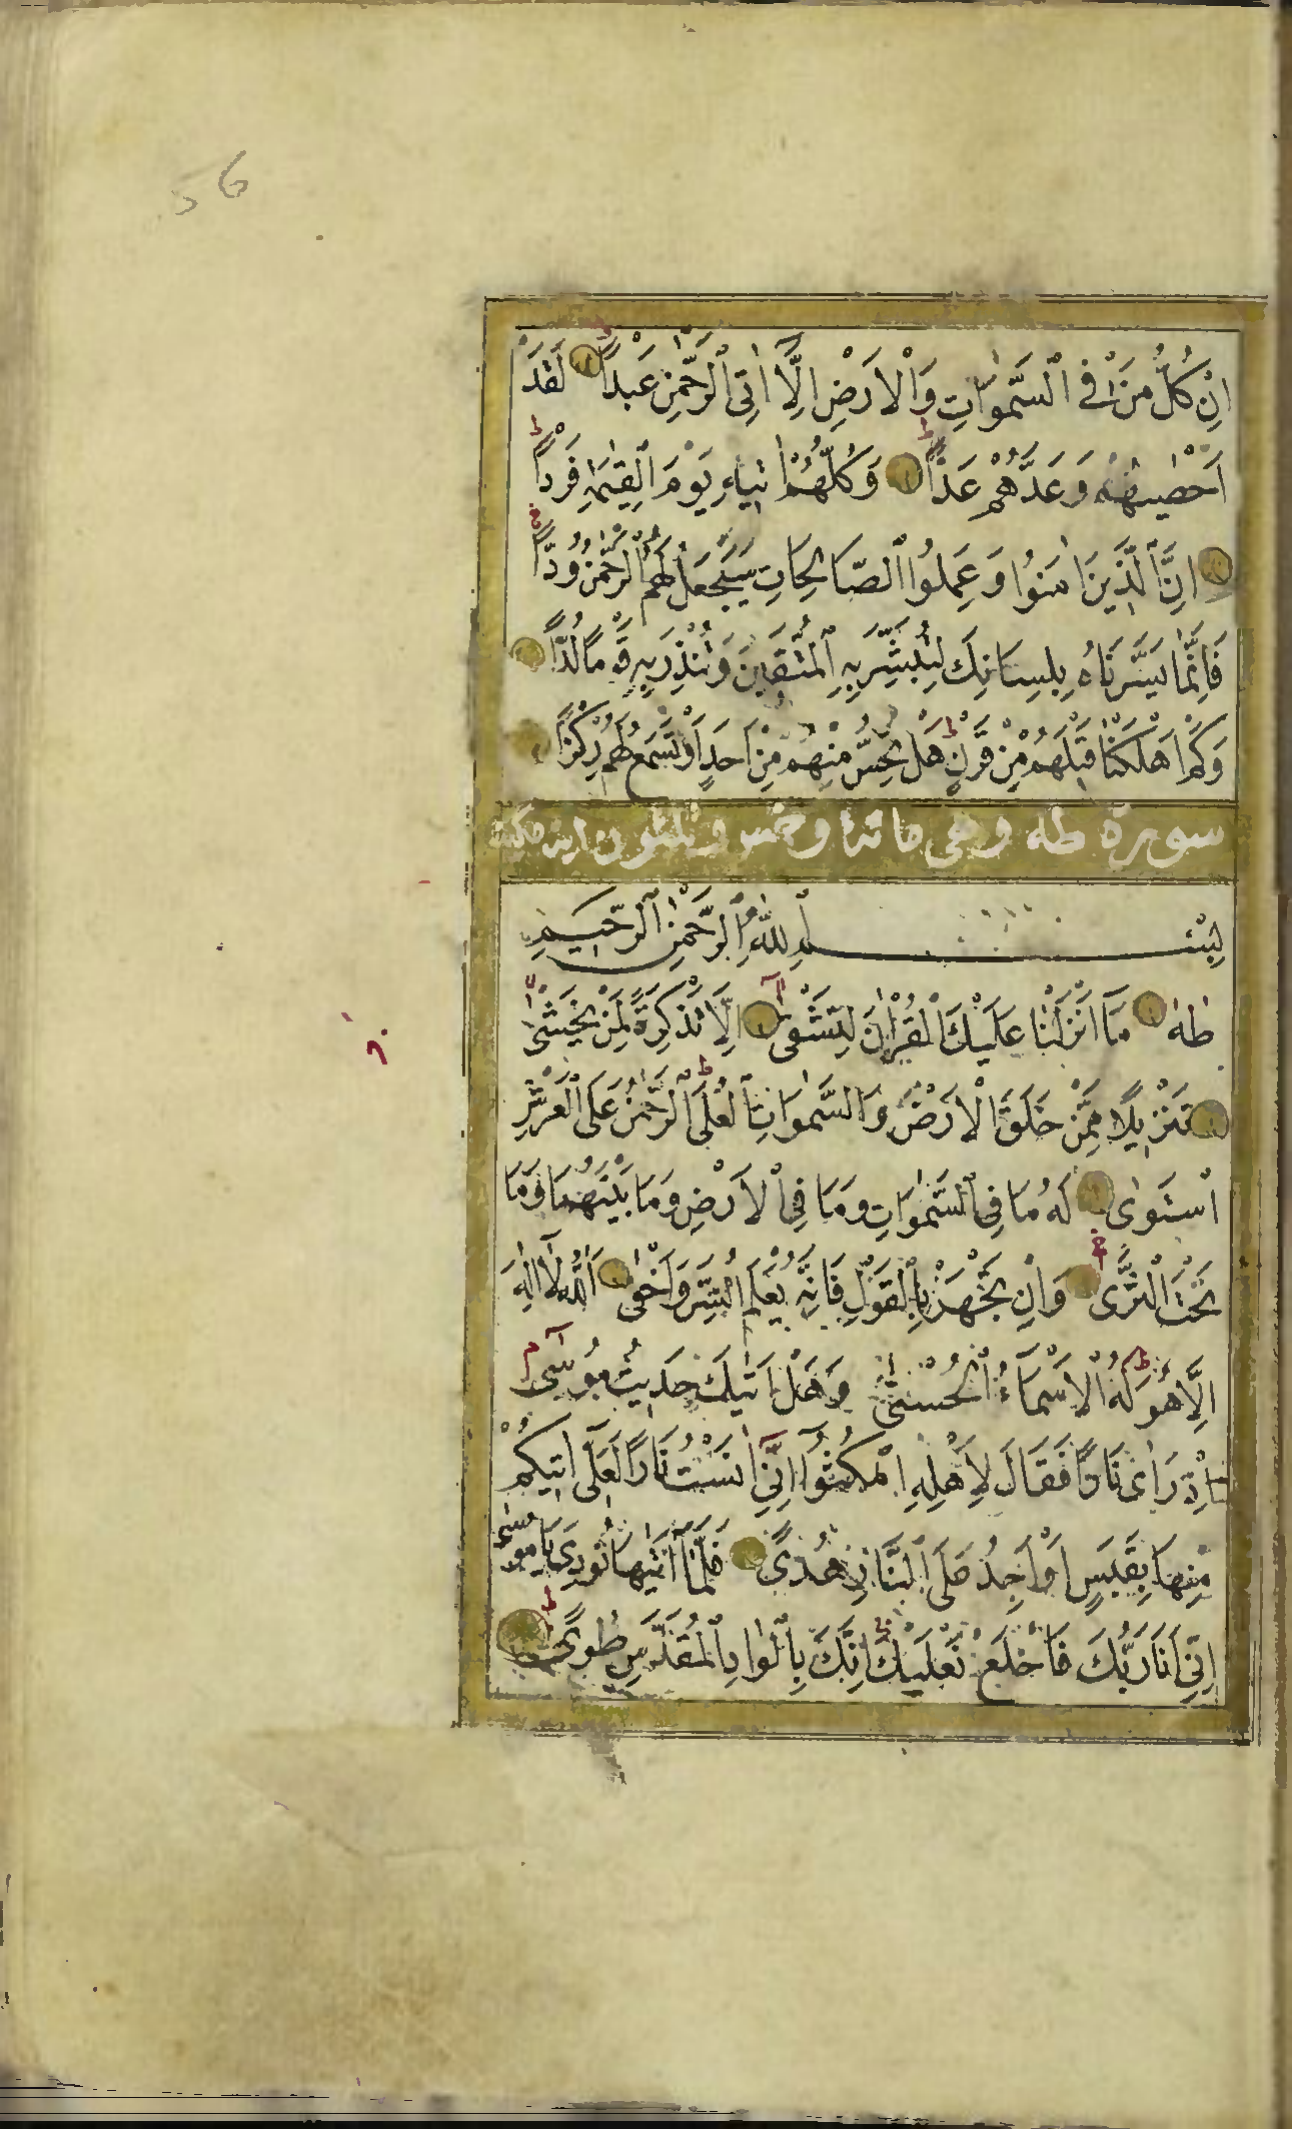 56
اِنْ كُلُّ مَنْ فِي السَّمٰوَاتِ وَالْاَرْضِ اِلَّا اٰتِى الرَّحْمٰنِ عَبْدًا لَقَدْ
اَحْصٰيهُمْ وَعَدَّهُمْ عَدًّا وَكُلُّهُمْ اٰتِيهِ يَوْمَ الْقِيٰمَةِ فَرْدًا
اِنَّ الَّذِينَ اٰمَنُوا وَعَمِلُوا الصَّالِحَاتِ سَيَجْعَلُ لَهُمُ الرَّحْمٰنُ وُدًّا
فَاِنَّمَا يَسَّرْنَاهُ بِلِسَانِكَ لِتُبَشِّرَ بِهِ الْمُتَّقِينَ وَتُنْذِرَ بِهِ قَوْمًا لُدًّا
وَكَمْ اَهْلَكْنَا قَبْلَهُمْ مِنْ قَرْنٍ هَلْ تُحِسُّ مِنْهُمْ مِنْ اَحَدٍ اَوْ تَسْمَعُ لَهُمْ رِكْزًا
سورة طه وهى مائة وخمس وثلثون اية مكية
بِسْمِ اللّٰهِ الرَّحْمٰنِ الرَّحِيمِ
طٰهٰ مَا اَنْزَلْنَا عَلَيْكَ الْقُرْاٰنَ لِتَشْقٰى اِلَّا تَذْكِرَةً لِمَنْ يَخْشٰى
تَنْزِيلًا مِمَّنْ خَلَقَ الْاَرْضَ وَالسَّمٰوَاتِ الْعُلَى الرَّحْمٰنُ عَلَى الْعَرْشِ
اسْتَوٰى لَهُ مَا فِي السَّمٰوَاتِ وَمَا فِي الْاَرْضِ وَمَا بَيْنَهُمَا وَمَا
تَحْتَ الثَّرٰى وَاِنْ تَجْهَرْ بِالْقَوْلِ فَاِنَّهُ يَعْلَمُ السِّرَّ وَاَخْفٰى اَللّٰهُ لَا اِلٰهَ
اِلَّا هُوَ لَهُ الْاَسْمَاءُ الْحُسْنٰى وَهَلْ اَتٰيكَ حَدِيثُ مُوسٰى
اِذْ رَاٰى نَارًا فَقَالَ لِاَهْلِهِ امْكُثُوا اِنِّي اٰنَسْتُ نَارًا لَعَلِّى اٰتِيكُمْ
مِنْهَا بِقَبَسٍ اَوْ اَجِدُ عَلَى النَّارِ هُدًى فَلَمَّا اَتٰيهَا نُودِىَ يَا مُوسٰى
اِنِّي اَنَا رَبُّكَ فَاخْلَعْ نَعْلَيْكَ اِنَّكَ بِالْوَادِ الْمُقَدَّسِ طُوًى